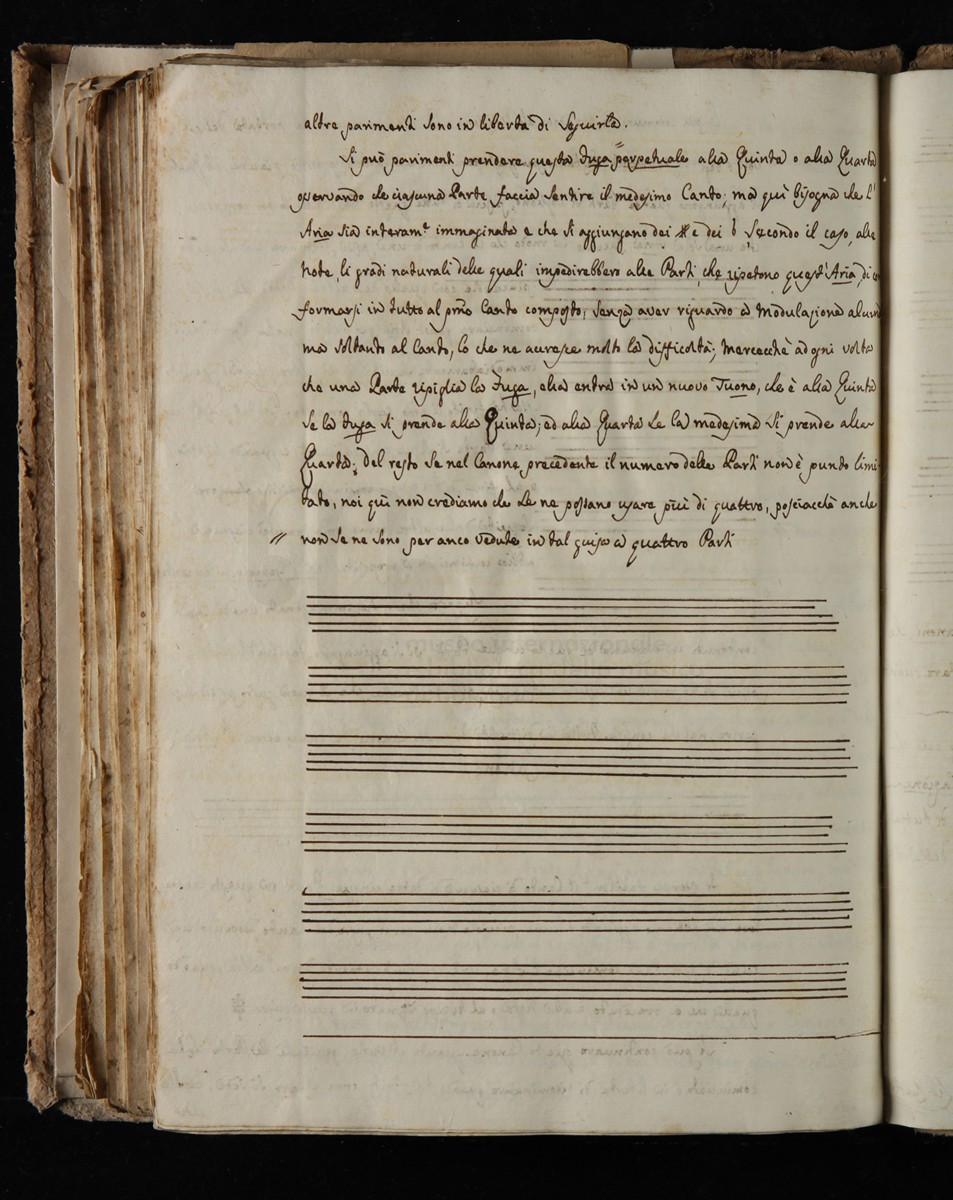 altre parimenti sono in libertà di seguirla.
Si può parimenti prendere questa Fuga perpetuale alla Quinta o alla Quarta
osservando che ciascuna Parte faccia sentire il medesimo Canto; ma qui bisogna che l'
Aria sia interam.e immaginata e che si aggiungano dei # e dei b secondo il caso, alle
Note, li gradi naturali delle quali impedirebbero alle Parti, che ripetono quest'Aria, di con
formarsi in tutto al pmo Canto composto; senza aver riguardo a Modulazione alcuna
ma soltanto al Canto, lo che ne accresce molto la difficoltà; mercecchè ad ogni volta
che una Parte ripiglia la Fuga, ella entra in un nuovo Tuono, che è alla Quinta
se la Fuga si prende alla Quinta; ed alla Quarta se la medesima si prende alla
Quarta; Del resto se nel Canone precedente il numero delle Parti non è punto limi
tato, noi qui non crediamo che se ne possano usare più di quattro, posciacchè anche
// non se ne sono per anco vedute in tal guisa a quattro Parti